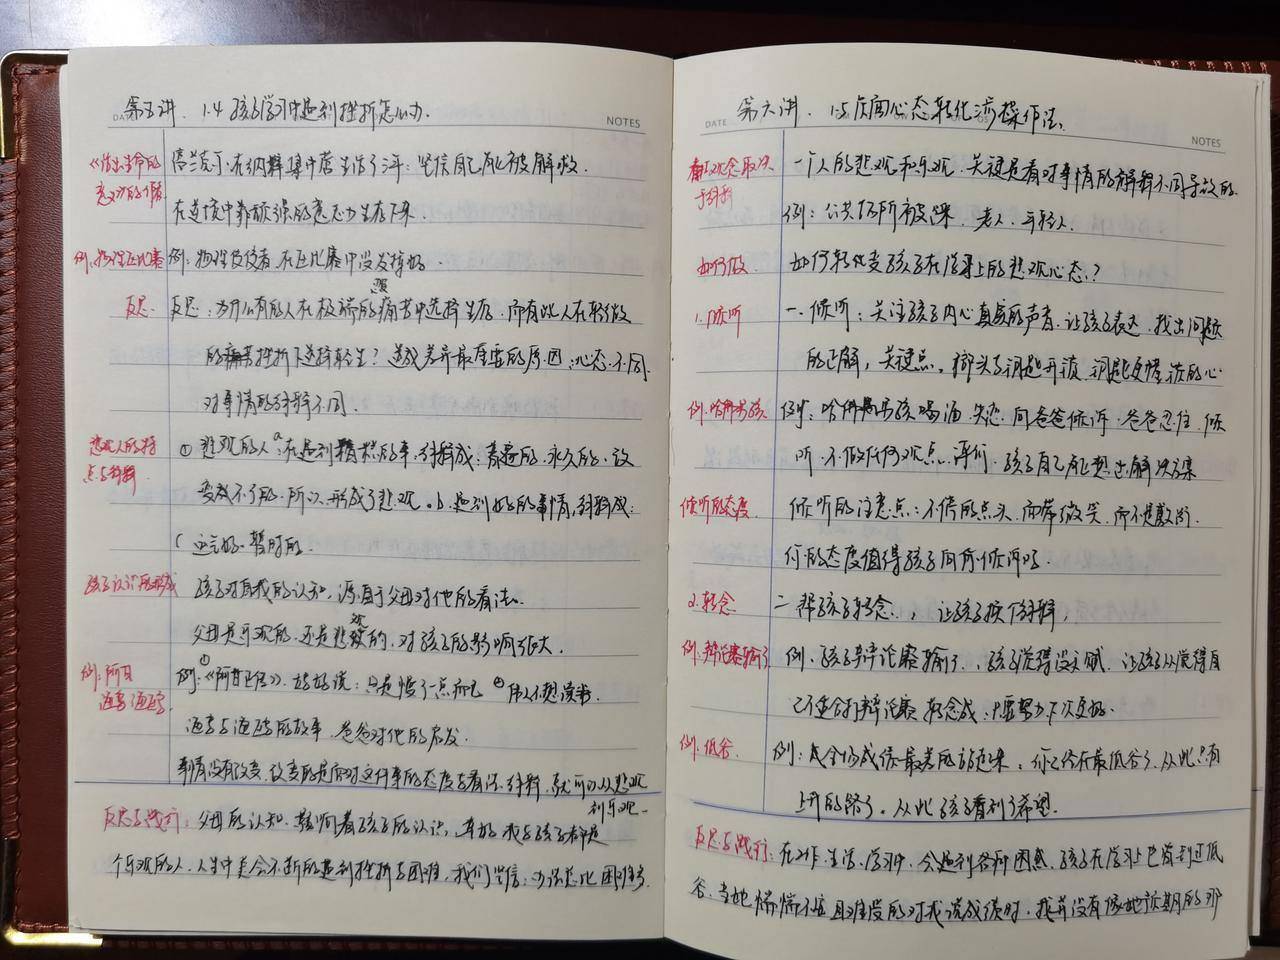 第五讲. 1.4 孩子学习中遇到挫折怎么办.
DATE NOTES
《活出生命的意义》的作者 弗兰克尔在纳粹集中营生活了三年: 坚信自己能被解救.
在逆境中靠顽强的意志力生存下来.
例: 物理系比赛 例: 物理 在比赛中没发挥好.
反思 反思: 为什么有的人在极端的痛苦中选择生存. 而有些人在轻微
的挫折下选择轻生? 造成差异最重要的原因: 心态不同.
对事情的解释不同.
悲观人的特点与解释 ① 悲观的人 a 在遇到糟糕的事. 解释成: 普遍的. 永久的. 改
变不了的. 所以. 形成了悲观. b. 遇到好的事情, 解释成:
( 运气好. 暂时的.
孩子认识的形成 孩子对自我的认知, 源自于父母对他的看法.
父母是乐观的. 还是悲观的. 对孩子的影响很大.
例: 阿甘 例: ①《阿甘正传》. 妈妈说: 只是慢了一点而已 ②
的故事. 爸爸对他的启发.
事情没有改变. 改变的是面对这件事的态度与看法. 解释. 就可以从悲观
到乐观.
反思与践行: 父母的认知. 影响着孩子的认识, 我与孩子都是
个乐观的人. 人生中总会不断的遇到挫折与困难. 我们坚信: 办法总比困难多.
第六讲. 1.5 负面心态转化法操作法.
DATE NOTES
观念取决于解释 一个人的悲观和乐观. 关键是看对事情的解释不同导致的.
例: 公共场所被踩. 老人. 年轻人.
如何做 如何转化变孩子在学习上的悲观心态?
1. 倾听 一. 倾听: 关注孩子内心真实的声音. 让孩子表达. 找出问题
的正解, 关键点. 榔头与钥匙开锁. 钥匙更懂锁的心
例: 哈佛男孩 例: 哈佛男孩喝酒. 失恋. 向爸爸倾诉. 爸爸忍住. 倾
听. 不做任何观点. 评价. 孩子自己能想出解决方案
倾听的态度 倾听的注意点: 不停的点头. 面带微笑. 而不是敷衍.
你的态度值得孩子向你倾诉吗.
2. 转念 二. 帮孩子转念, 让孩子换个解释,
例: 辩论赛输了 例. 孩子辩论赛输了. 孩子觉得没天赋. 让孩子从觉得自
己不适合打辩论赛. 转念成: 只需努力下次更好.
例: 低谷. 例: 成绩最差的站起来. 你已经在最低谷了. 从此只有
上升的路了. 从此孩子看到了希望.
反思与践行: 在工作. 生活. 学习中. 会遇到各种困惑. 孩子在学习上也曾到过低
谷. 当她惴惴不安且难受的对我说成绩时. 我并没有像她预期的那